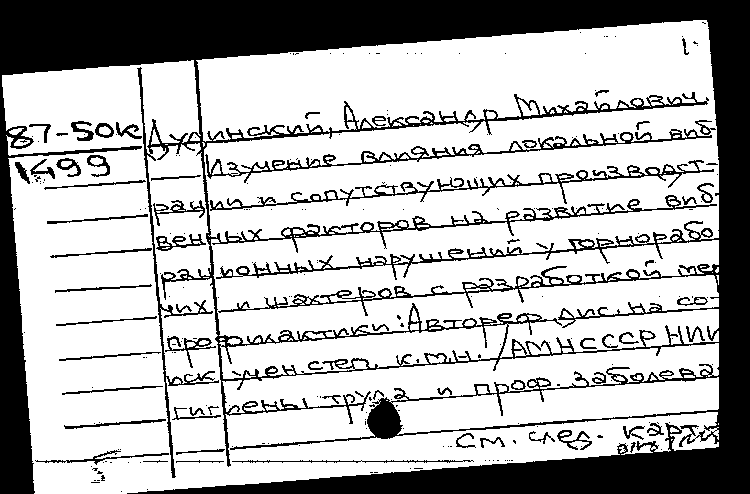 1.
87-50к Дудинский, Александр Михайлович.
1499 Изучение влияния локальной виб-
рации и сопутствующих производст-
венных факторов на развитие виб-
рационных нарушений у горнорабо
чих и шахтеров с разработкой мер
профилактики: Автореф. дис. на со-
иск. учен. степ. к.м.н. / АМН СССР, НИИ
гигиены труда и проф. заболева
см. след. карт